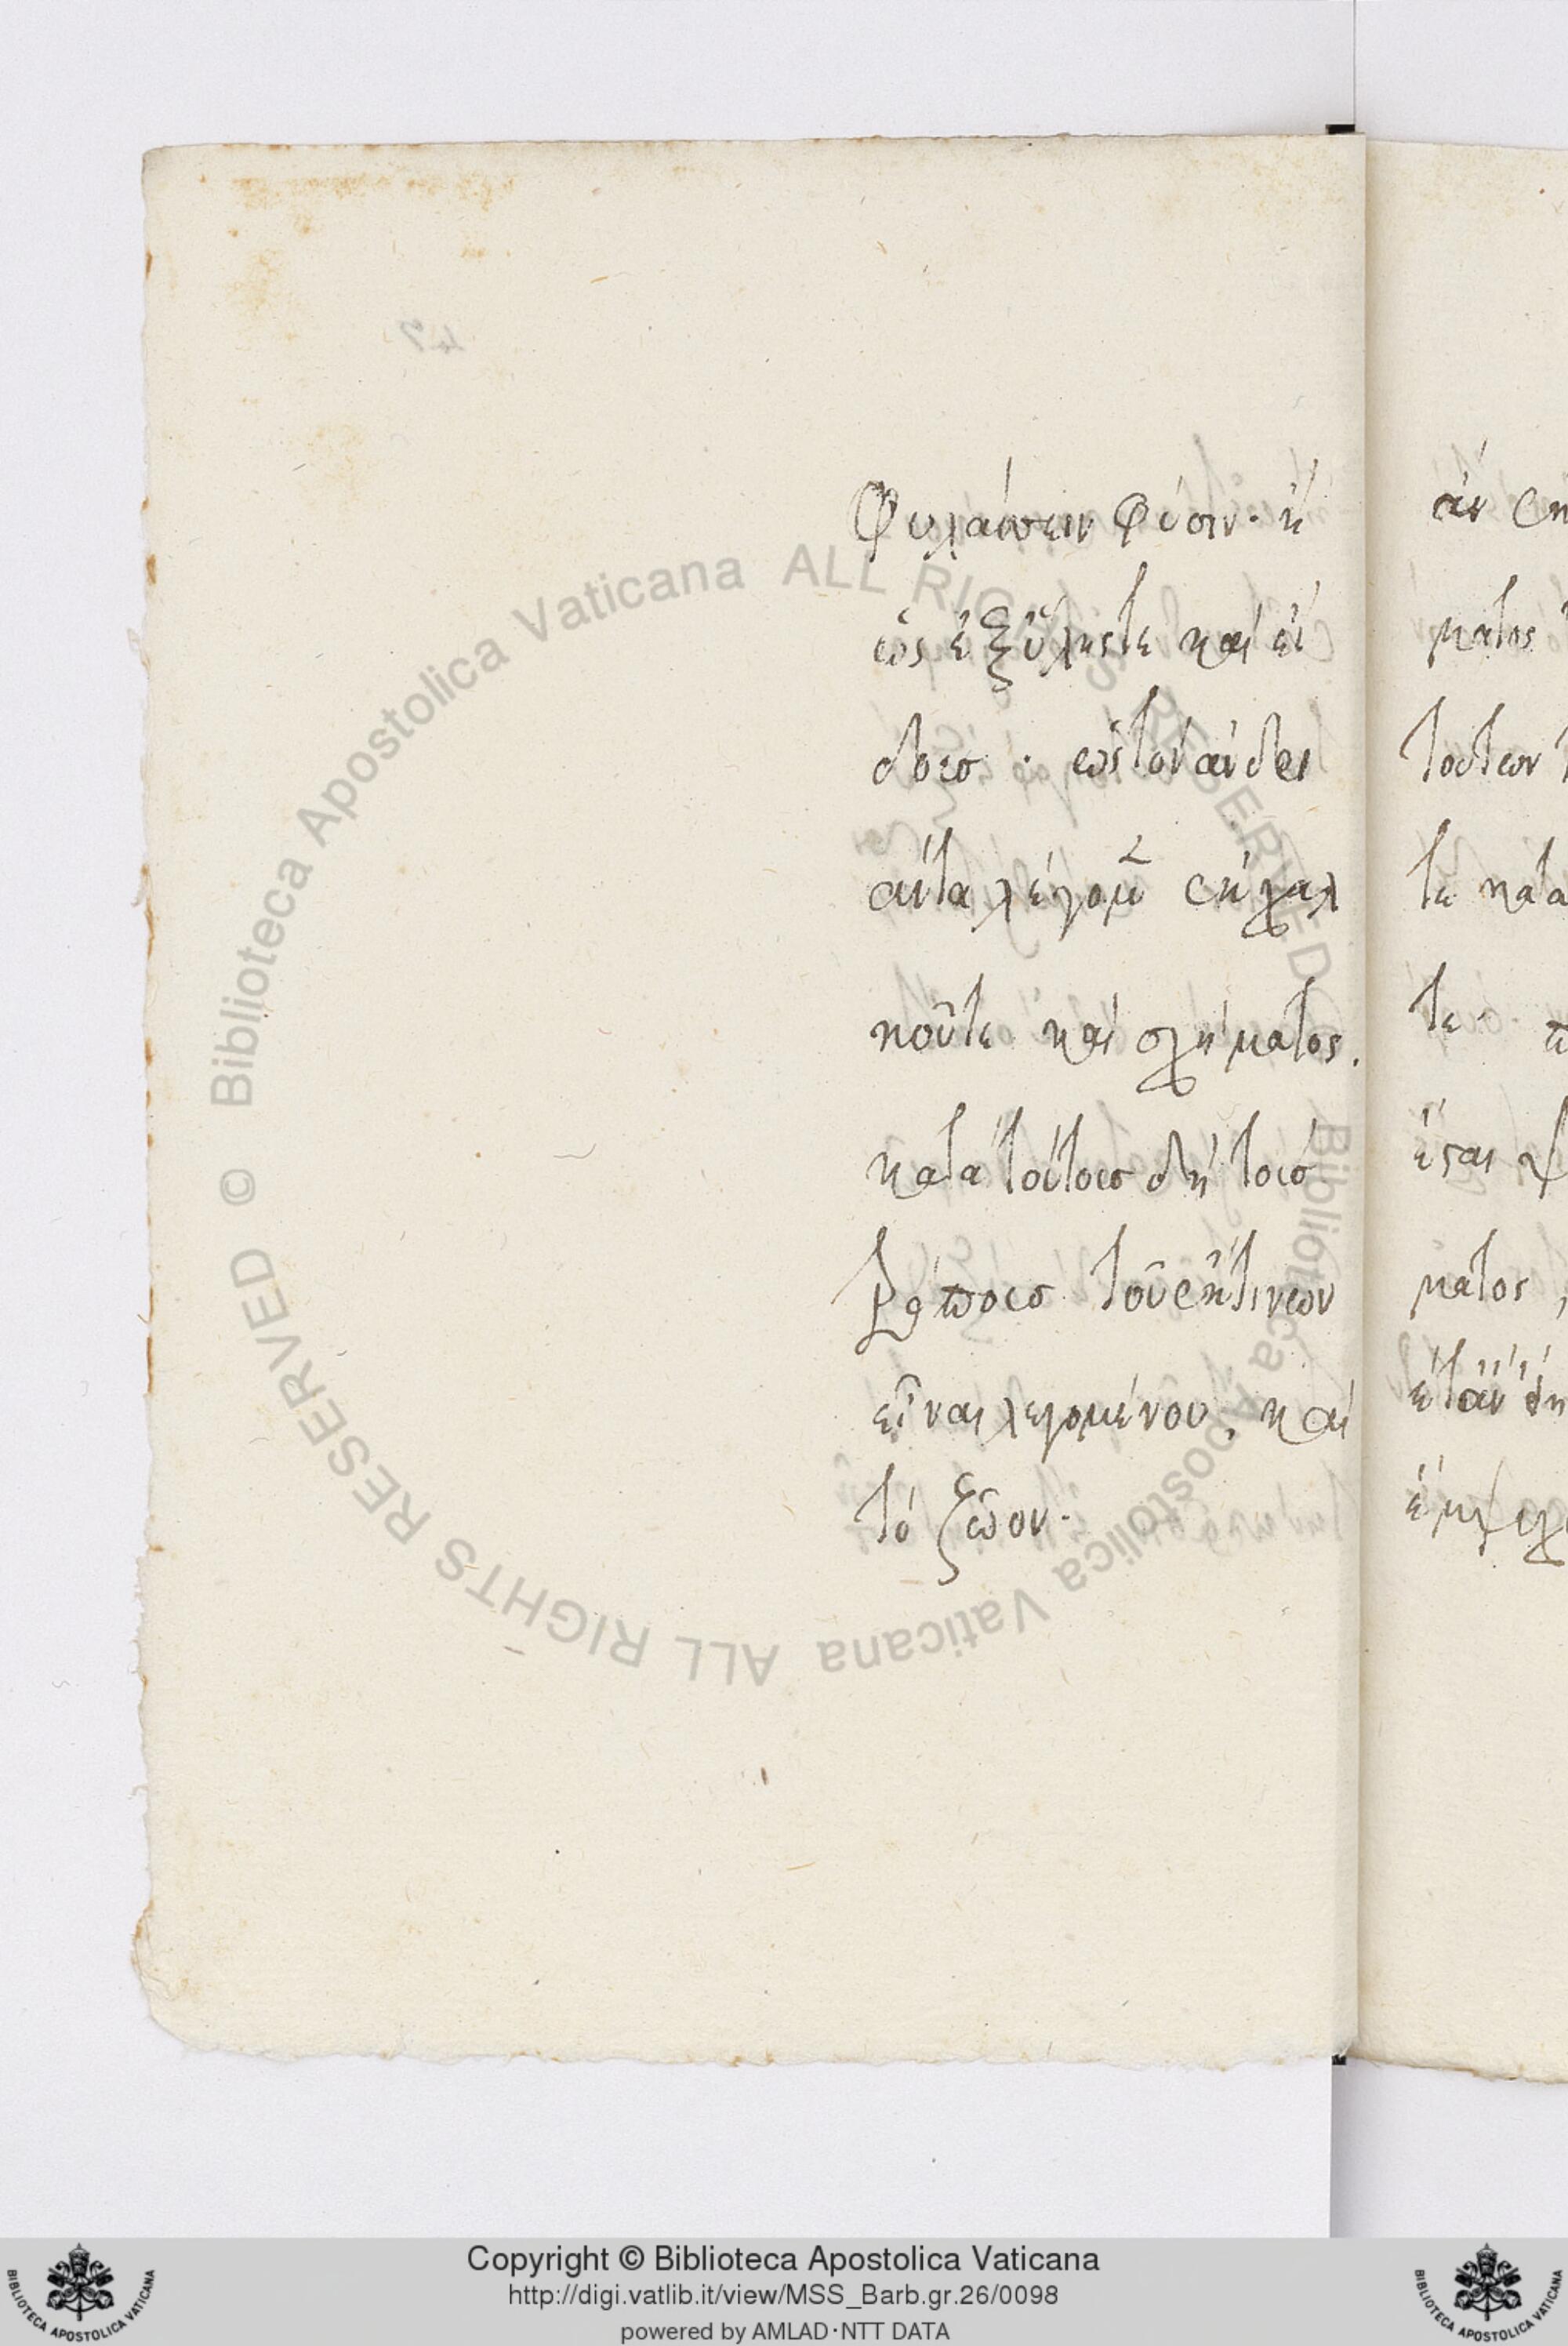 φυλάττειν φύσιν· ἢ
ὡς ἐξ ὕλης τε καὶ εἴ
δους · ὡς τὸν ἀνδρι
άντα λέγομεν ἐκ χαλ
κοῦ τε καὶ σχήματος.
κατὰ τούτους δὴ τοὺς
τρόπους τοῦ ἔκ τινων
εἶναι λεγομένου, καὶ
τὸ ζῶον·
ἂν ἐκ
ματος
τούτων
τε κατὰ
τε·
ἔσται ψ
ματος
Biblioteca Apostolica Vaticana ALL RIGHTS RESERVED ©
Biblioteca Apostolica Vaticana ALL RIGHTS RESERVED ©
Copyright © Biblioteca Apostolica Vaticana
http://digi.vatlib.it/view/MSS_Barb.gr.26/0098
powered by AMLAD·NTT DATA
BIBLIOTECA APOSTOLICA VATICANA
BIBLIOTECA APOSTOLICA VATICANA